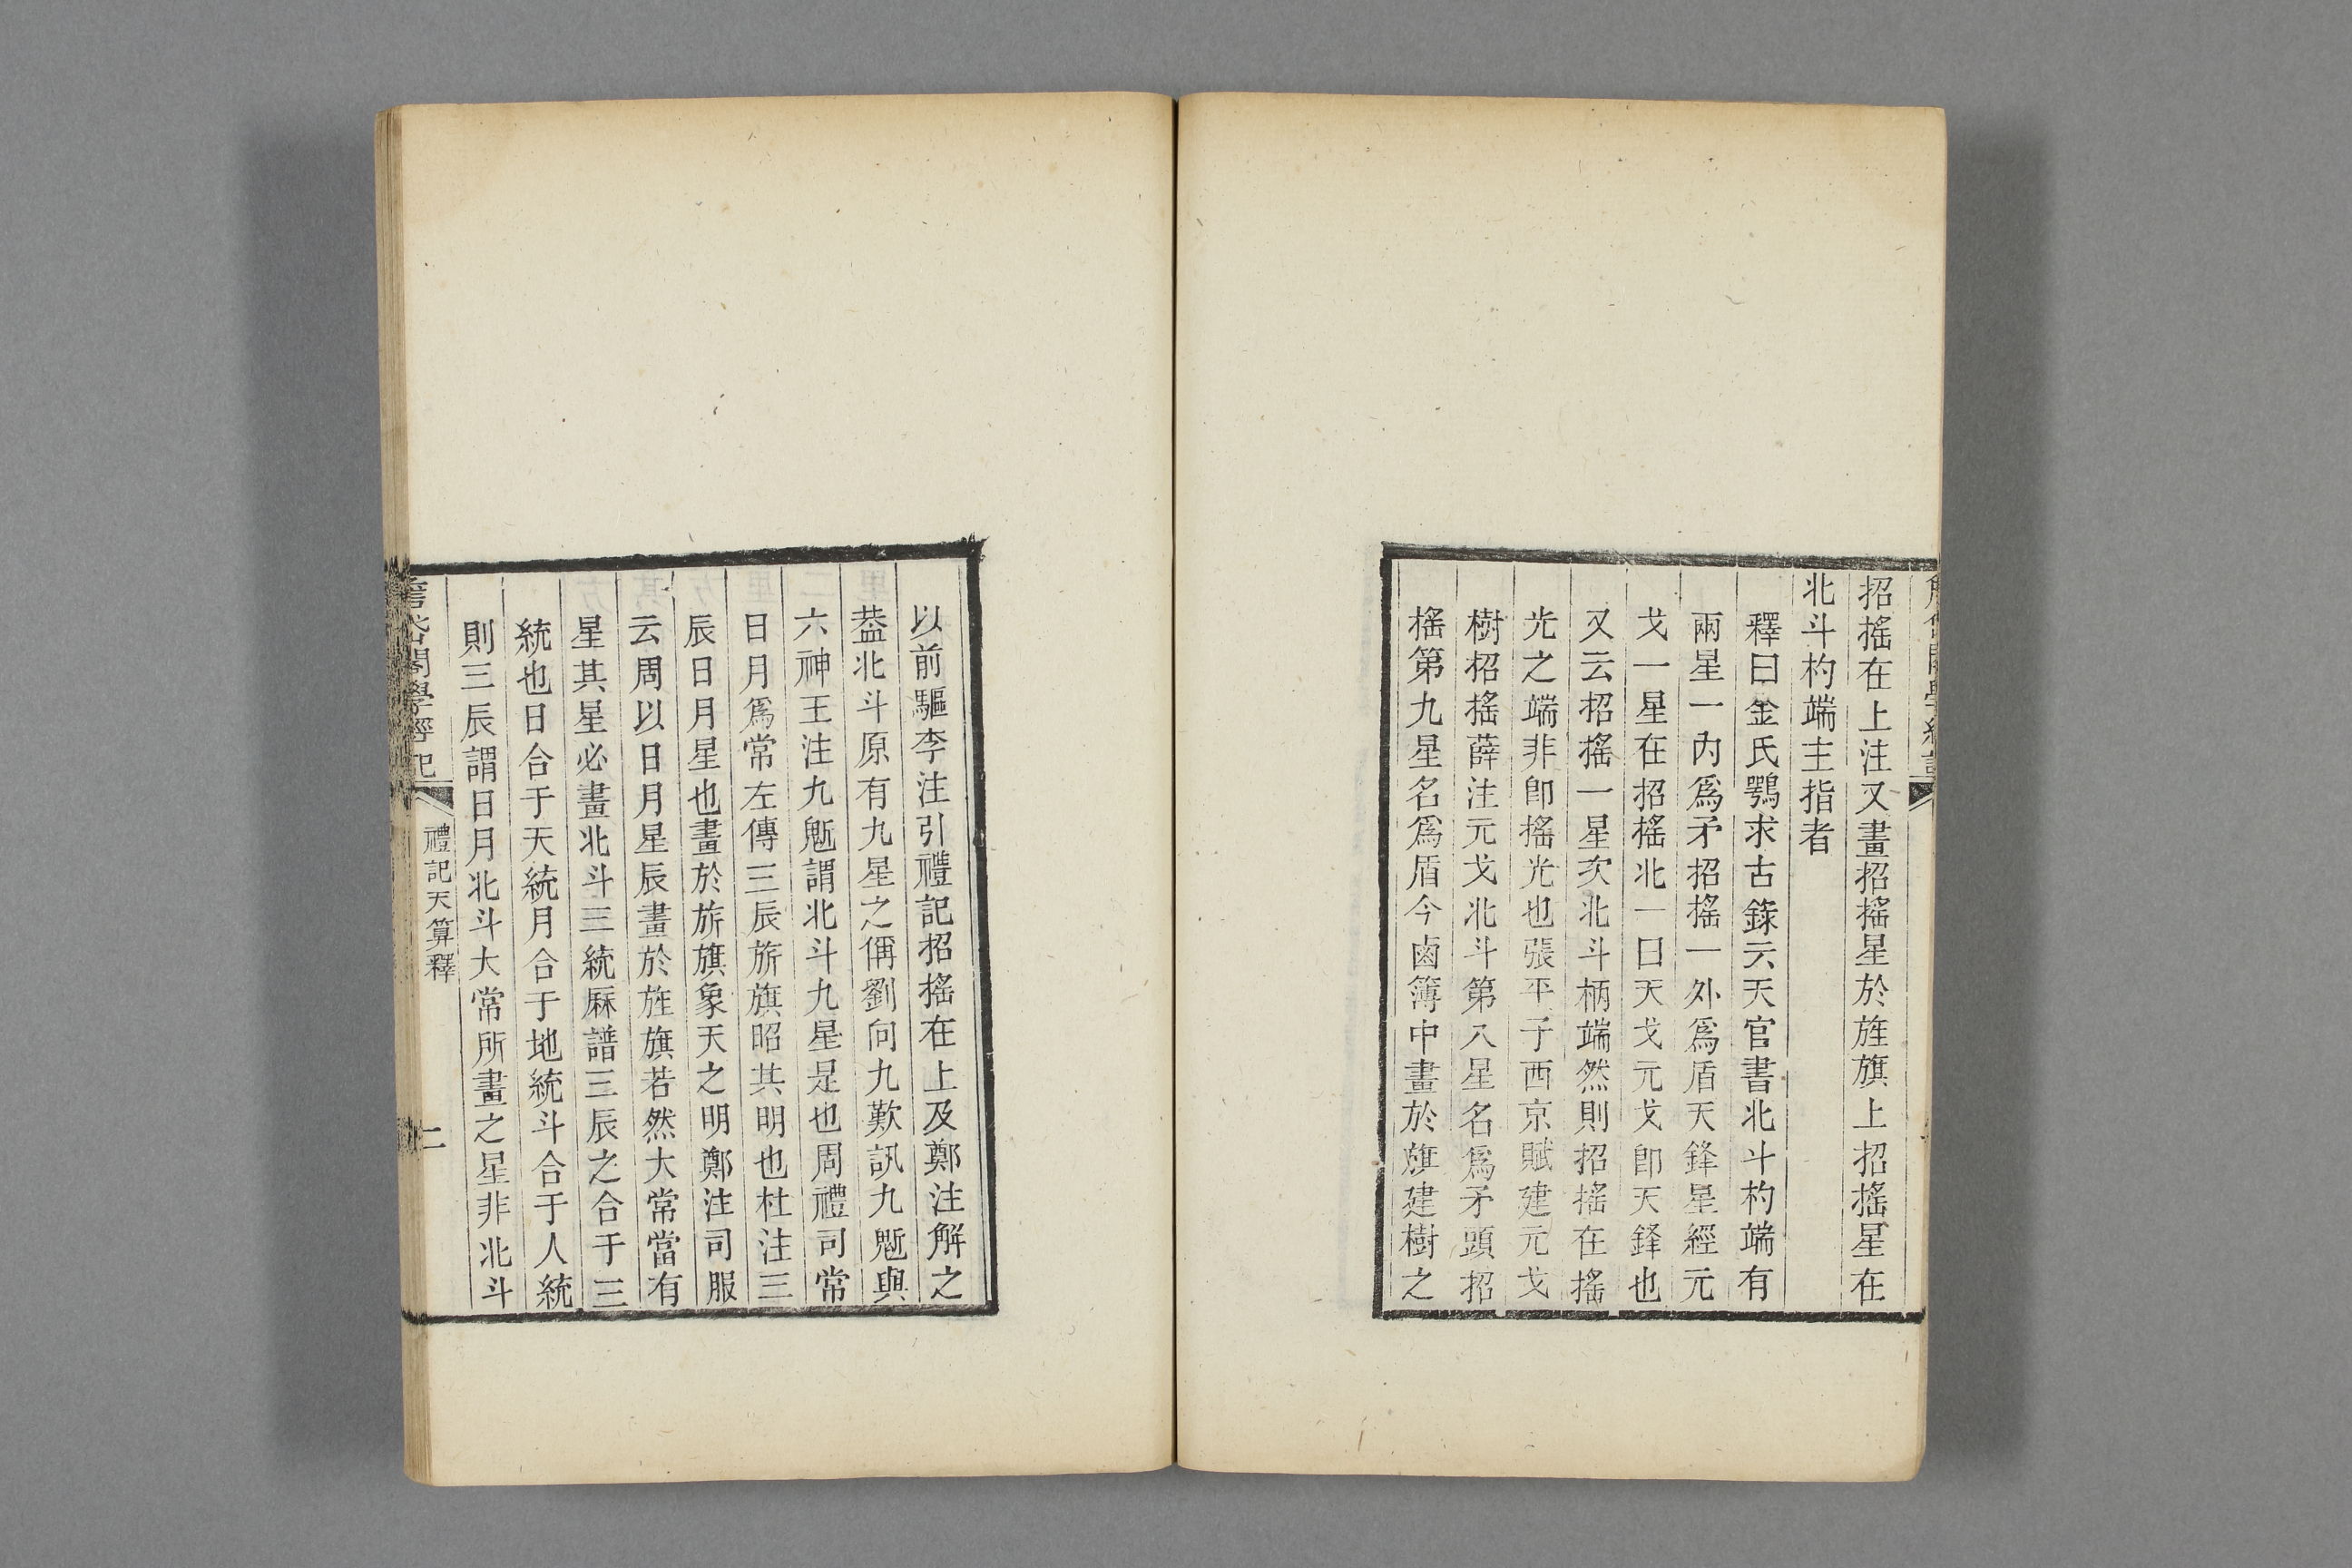 招搖在上注又畫招搖星於旌旗上招搖星在
北斗杓端主指者
釋曰金氏鶚求古錄云天官書北斗杓端有
兩星一內爲矛招搖一外爲盾天鋒星經元
戈一星在招搖北一曰天戈元戈卽天鋒也
又云招搖一星次北斗柄端然則招搖在搖
光之端非卽搖光也張平子西京賦建元戈
樹招搖薛注元戈北斗第八星名爲矛頭招
搖第九星名爲盾今鹵簿中畫於旗建樹之
以前驅李注引禮記招搖在上及鄭注解之
葢北斗原有九星之偁劉向九歎訊九鬿與
六神王注九鬿謂北斗九星是也周禮司常
日月爲常左傳三辰旂旗昭其明也杜注三
辰日月星也畫於旂旗象天之明鄭注司服
云周以日月星辰畫於旌旗若然大常當有
星其星必畫北斗三統厤譜三辰之合于三
統也日合于天統月合于地統斗合于人統
則三辰謂日月北斗大常所畫之星非北斗
閣學經記
禮記天算釋
二